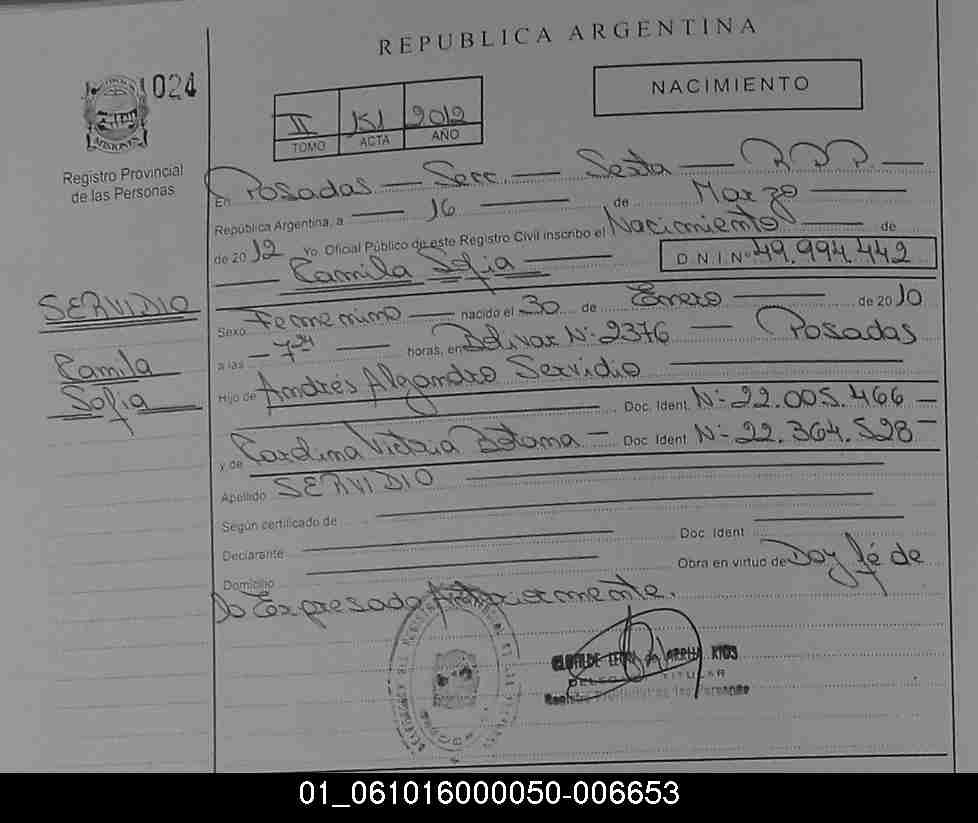 REPUBLICA ARGENTINA
024
NACIMIENTO
II 2012
TOMO ACTA AÑO
Registro Provincial
de las Personas
En Posadas — Secc — Sexta —
República Argentina, a — 16 — de Marzo —
de 2012 Yo, Oficial Público de este Registro Civil inscribo el Nacimiento — de
— Camila Sofia — DNI Nº 49.994.442
SERVIDIO
Camila
Sofia
Sexo Femenino — nacido el 30 de Enero — de 2010
a las — 7 — horas, en Bolivar Nº 2376 — Posadas
Hijo de Andrés Alejandro Servidio —
Doc. Ident. Nº 22.005.466 —
y de Victoria — Doc. Ident Nº 22.364.528 —
Apellido SERVIDIO —
Según certificado de —
Declarante — Doc. Ident —
Domicilio — Obra en virtud de Doy fé de
Lo Expresado Anteriormente.
CLOTILDE
TITULAR
01_061016000050-006653